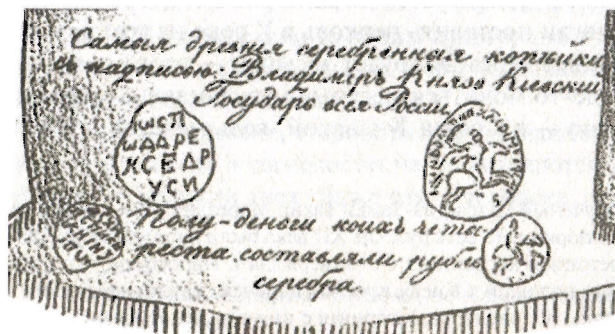 Самыя древнiя серебренныя копѣйки
съ надписью: Владимiръ Князь Кiевскiй
Государь всея Росiи
ШСП
ШДАРЕ
КСЕДР
УСИ
коихъ четы-
реста составляли рубль
серебра.